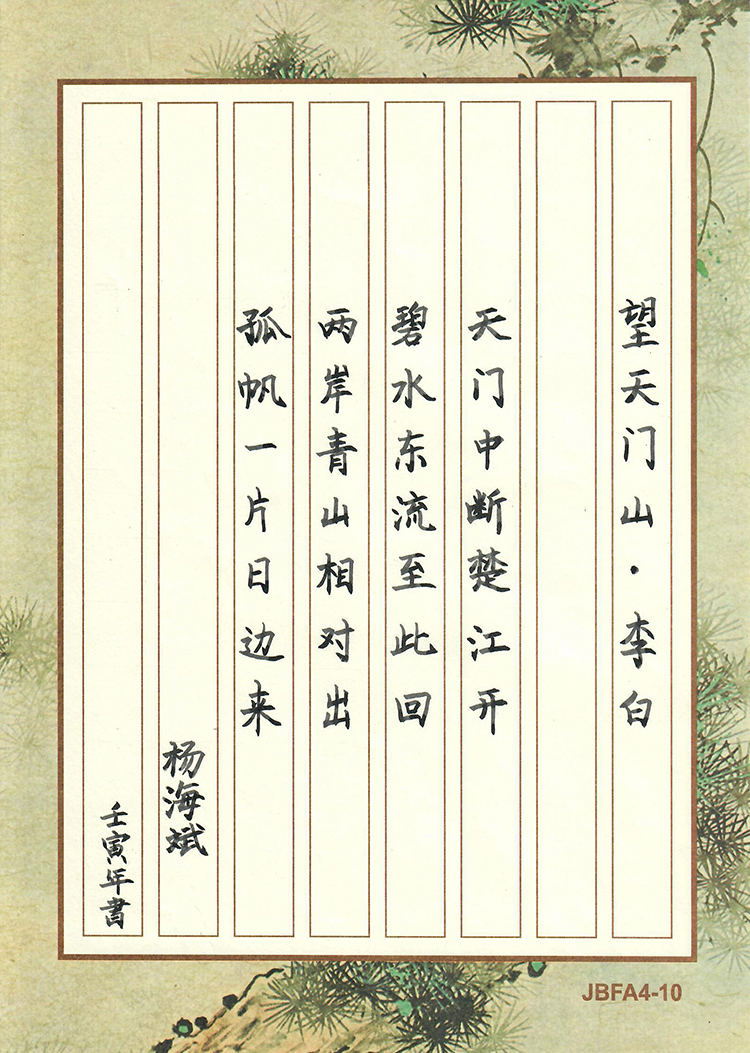 望天门山·李白
天门中断楚江开
碧水东流至此回
两岸青山相对出
孤帆一片日边来
杨海斌
壬寅年書
JBFA4-10